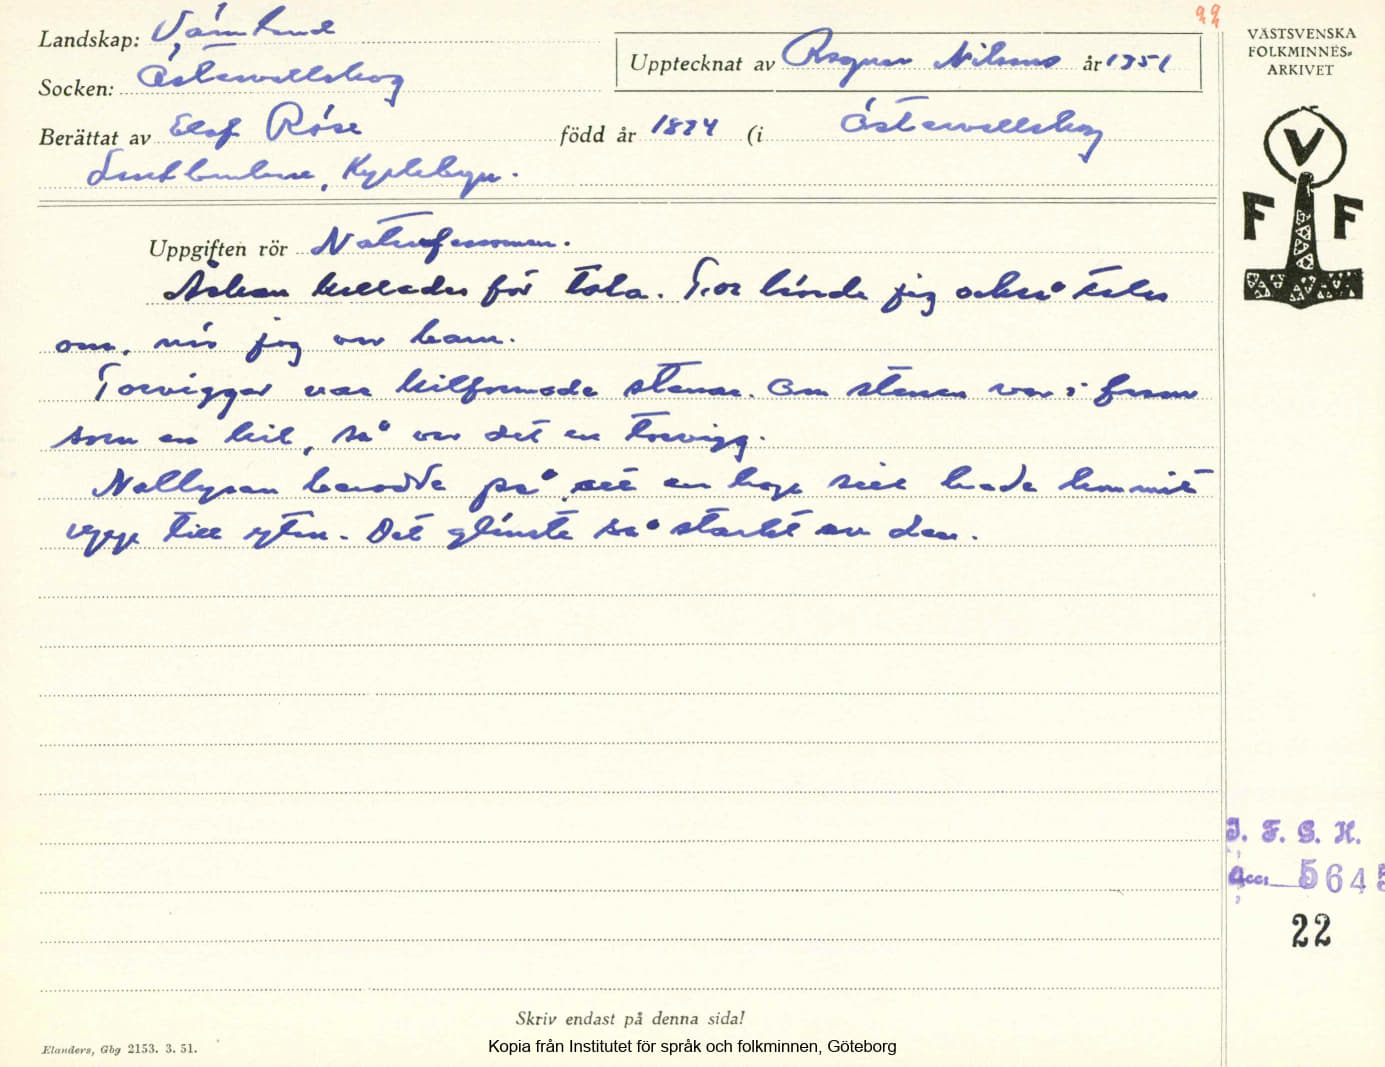 22
VÄSTSVENSKA
FOLKMINNES-
ARKIVET
V
F F
Landskap: Värmland
Socken: Östervallskog
Upptecknat av Ragnar Nilsson år 1951
Berättat av Elof Röse född år 1874 (i Östervallskog
Lantbrukare, Kyrkebyn.
Uppgiften rör Naturfenomen.
Åskan kallades för tola. Tor hörde jag också talas
om, när jag var barn.
Torviggar var kilformade stenar. Om stenen var i form
som en kil, så var det en torvigg.
berodde på att en hage sill hade kommit
upp till ytan. Det glänste så starkt av den.
I. F. G. H.
Acc. 5645
22
Skriv endast på denna sida!
Elanders, Gbg 2153. 3. 51.
Kopia från Institutet för språk och folkminnen, Göteborg